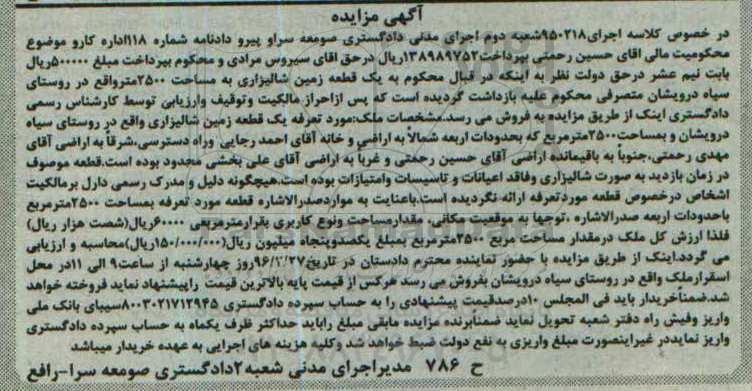 آگهی مزایده
در خصوص کلاسه اجرای۹۵۰۲۱۸شعبه دوم اجرای مدنی دادگستری صومعه سراو پیرو دادنامه شماره ۱۱۸اداره کارو موضوع
محکومیت مالی اقای حسین رحمتی بپرداخت۱۳۸۹۸۹۷۵۲ریال درحق اقای سیروس مرادی و محکوم بپرداخت مبلغ ۵۰۰۰۰۰ریال
بابت نیم عشر درحق دولت نظر به اینکه در قبال محکوم به یک قطعه زمین شالیزاری به مساحت ۲۵۰۰مترواقع در روستای
سیاه درویشان متصرفی محکوم علیه بازداشت گردیده است که پس ازاحراز مالکیت وتوقیف وارزیابی توسط کارشناس رسمی
دادگستری اینک از طریق مزایده به فروش می رسد.مشخصات ملک:مورد تعرفه یک قطعه زمین شالیزاری واقع در روستای سیاه
درویشان و بمساحت۲۵۰۰مترمربع که بحدودات اربعه شمالاً به اراضی و خانه آقای احمد رجایی وراه دسترسی،شرقاً به اراضی آقای
مهدی رحمتی،جنوباً به باقیمانده اراضی آقای حسین رحمتی و غرباً به اراضی آقای علی بخشی محدود بوده است.قطعه موصوف
در زمان بازدید به صورت شالیزاری وفاقد اعیانات و تاسیسات وامتیازات بوده است.هیچگونه دلیل و مدرک رسمی دارل برمالکیت
اشخاص درخصوص قطعه موردتعرفه ارائه نگردیده است.باعنایت به مواردصدرالاشاره قطعه مورد تعرفه بمساحت ۲۵۰۰مترمربع
باحدودات اربعه صدرالاشاره ،توجها به موقعیت مکانی، مقدارمساحت ونوع کاربری بقرارمترمربعی ۶۰۰۰۰ریال(شصت هزار ریال)
فلذا ارزش کل ملک درمقدار مساحت مربع ۲۵۰۰مترمربع بمبلغ یکصدوپنجاه میلیون ریال(۱۵۰/۰۰۰/۰۰۰ریال)محاسبه و ارزیابی
می گردد.اینک از طریق مزایده با حضور نماینده محترم دادستان در تاریخ۹۶/۲/۲۷روز چهارشنبه از ساعت۹ الی ۱۱در محل
اسقرارملک واقع در روستای سیاه درویشان بفروش می رسد هرکس از قیمت پایه بالاترین قیمت راپیشنهاد نماید فروخته خواهد
شد.ضمناًخریدار باید فی المجلس ۱۰درصدقیمت پیشنهادی را به حساب سپرده دادگستری ۸۰۰۳۰۲۱۷۱۲۹۴۵سیبای بانک ملی
واریز وفیش راه دفتر شعبه تحویل نماید ضمنابرنده مزایده مابقی مبلغ راباید حداکثر ظرف یکماه به حساب سپرده دادگستری
واریز نمایددر غیراینصورت مبلغ واریزی به نفع دولت ضبط خواهد شد وکلیه هزینه های اجرایی به عهده خریدار میباشد
ح ۷۸۶ مدیراجرای مدنی شعبه۲دادگستری صومعه سرا-رافع